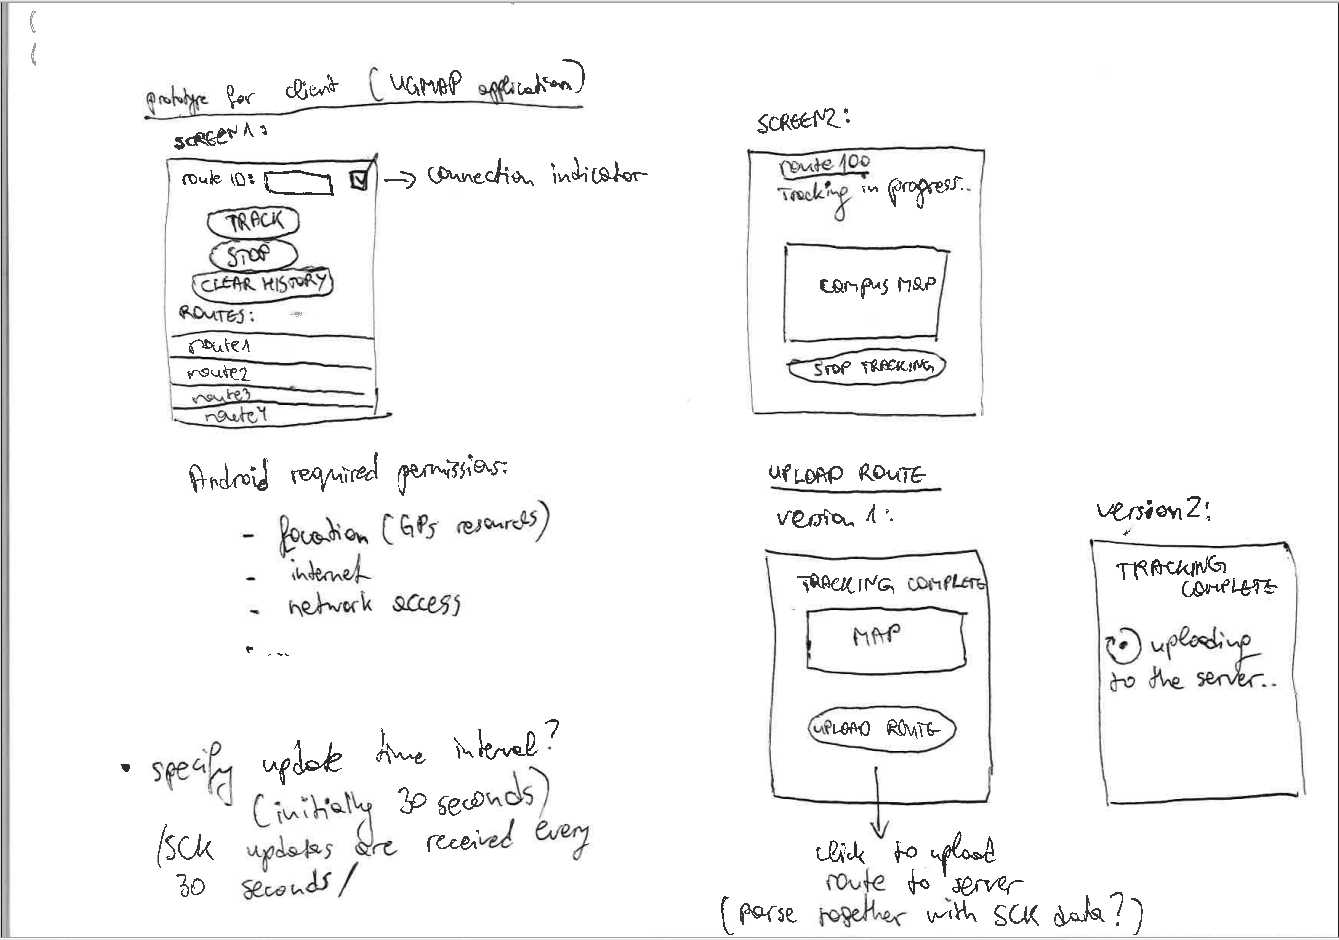 prototype for client (UGMAP application)
SCREEN1:
route ID:
→ connection indicator
TRACK
STOP
CLEAR HISTORY
ROUTES:
route1
route2
route3
route4
Android required permissions:
- location (GPS resources)
- internet
- network access
• ....
• specify update time interval?
(initially 30 seconds)
/SCK updates are received every
30 seconds/
SCREEN2:
route 100
Tracking in progress..
campus MAP
STOP TRACKING
UPLOAD ROUTE
version 1:
TRACKING COMPLETE
MAP
UPLOAD ROUTE
click to upload
route to server
(parse together with SCK data?)
version2:
TRACKING
COMPLETE
uploading
to the server..